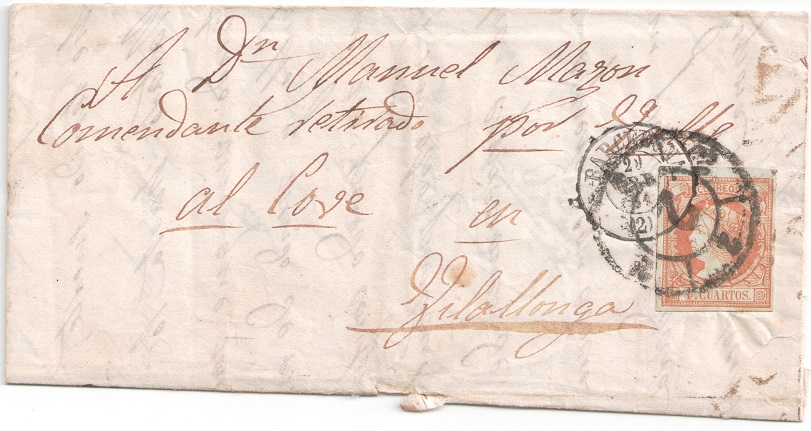 A Dn Manuel Mazon
Comendante retirado por Valls
al Cove en
Vilallonga
BAR
29
(2)
2
CUARTOS.